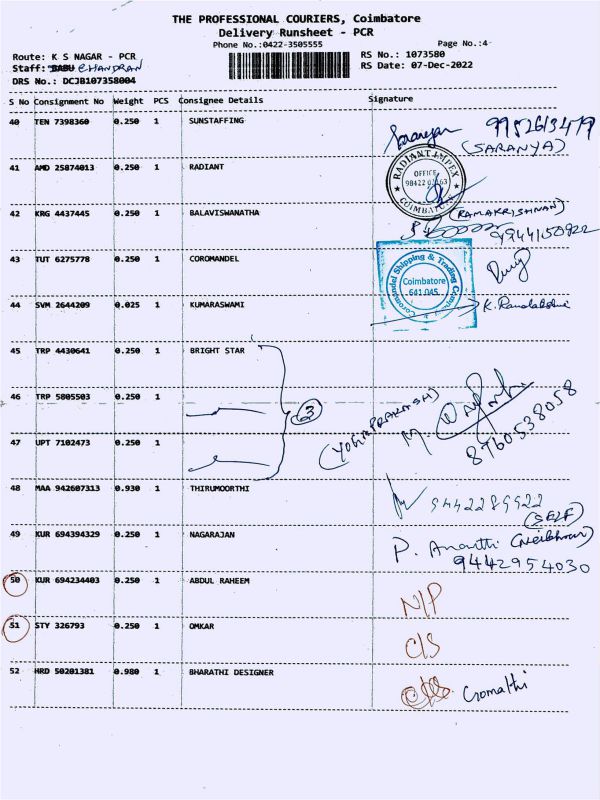 THE PROFESSIONAL COURIERS, Coimbatore
Delivery Runsheet - PCR
Phone No.:0422-3505555
Page No.:4
Route: K S NAGAR - PCR
RS No.: 1073580
Staff: BABU CHANDRAN
RS Date: 07-Dec-2022
DRS No.: DCJB107358004
S No Consignment No Weight PCS Consignee Details Signature
40 TEN 7398360 0.250 1 SUNSTAFFING Saranya
(SARANYA)
41 AMD 25874013 0.250 1 RADIANT
RADIANT IMPEX
OFFICE
COIMBATORE
42 KRG 4437445 0.250 1 BALAVISWANATHA (RAMAKRISHNAN)
9944150922
43 TUT 6275778 0.250 1 COROMANDEL
Coromandel Shipping & Trading
Coimbatore
641 045
44 SVM 2644209 0.025 1 KUMARASWAMI
45 TRP 4430641 0.250 1 BRIGHT STAR
46 TRP 5805503 0.250 1
3
(YOGIAPRAKASH)
47 UPT 7102473 0.250 1 8760538058
48 MAA 942607313 0.930 1 THIRUMOORTHI 9442289922
(SELF)
49 KUR 694394329 0.250 1 NAGARAJAN P. Ananthi (Neibhour)
9442954030
50 KUR 694234403 0.250 1 ABDUL RAHEEM N/P
51 STY 326793 0.250 1 OMKAR C/S
52 HRD 50201381 0.980 1 BHARATHI DESIGNER Gomathi